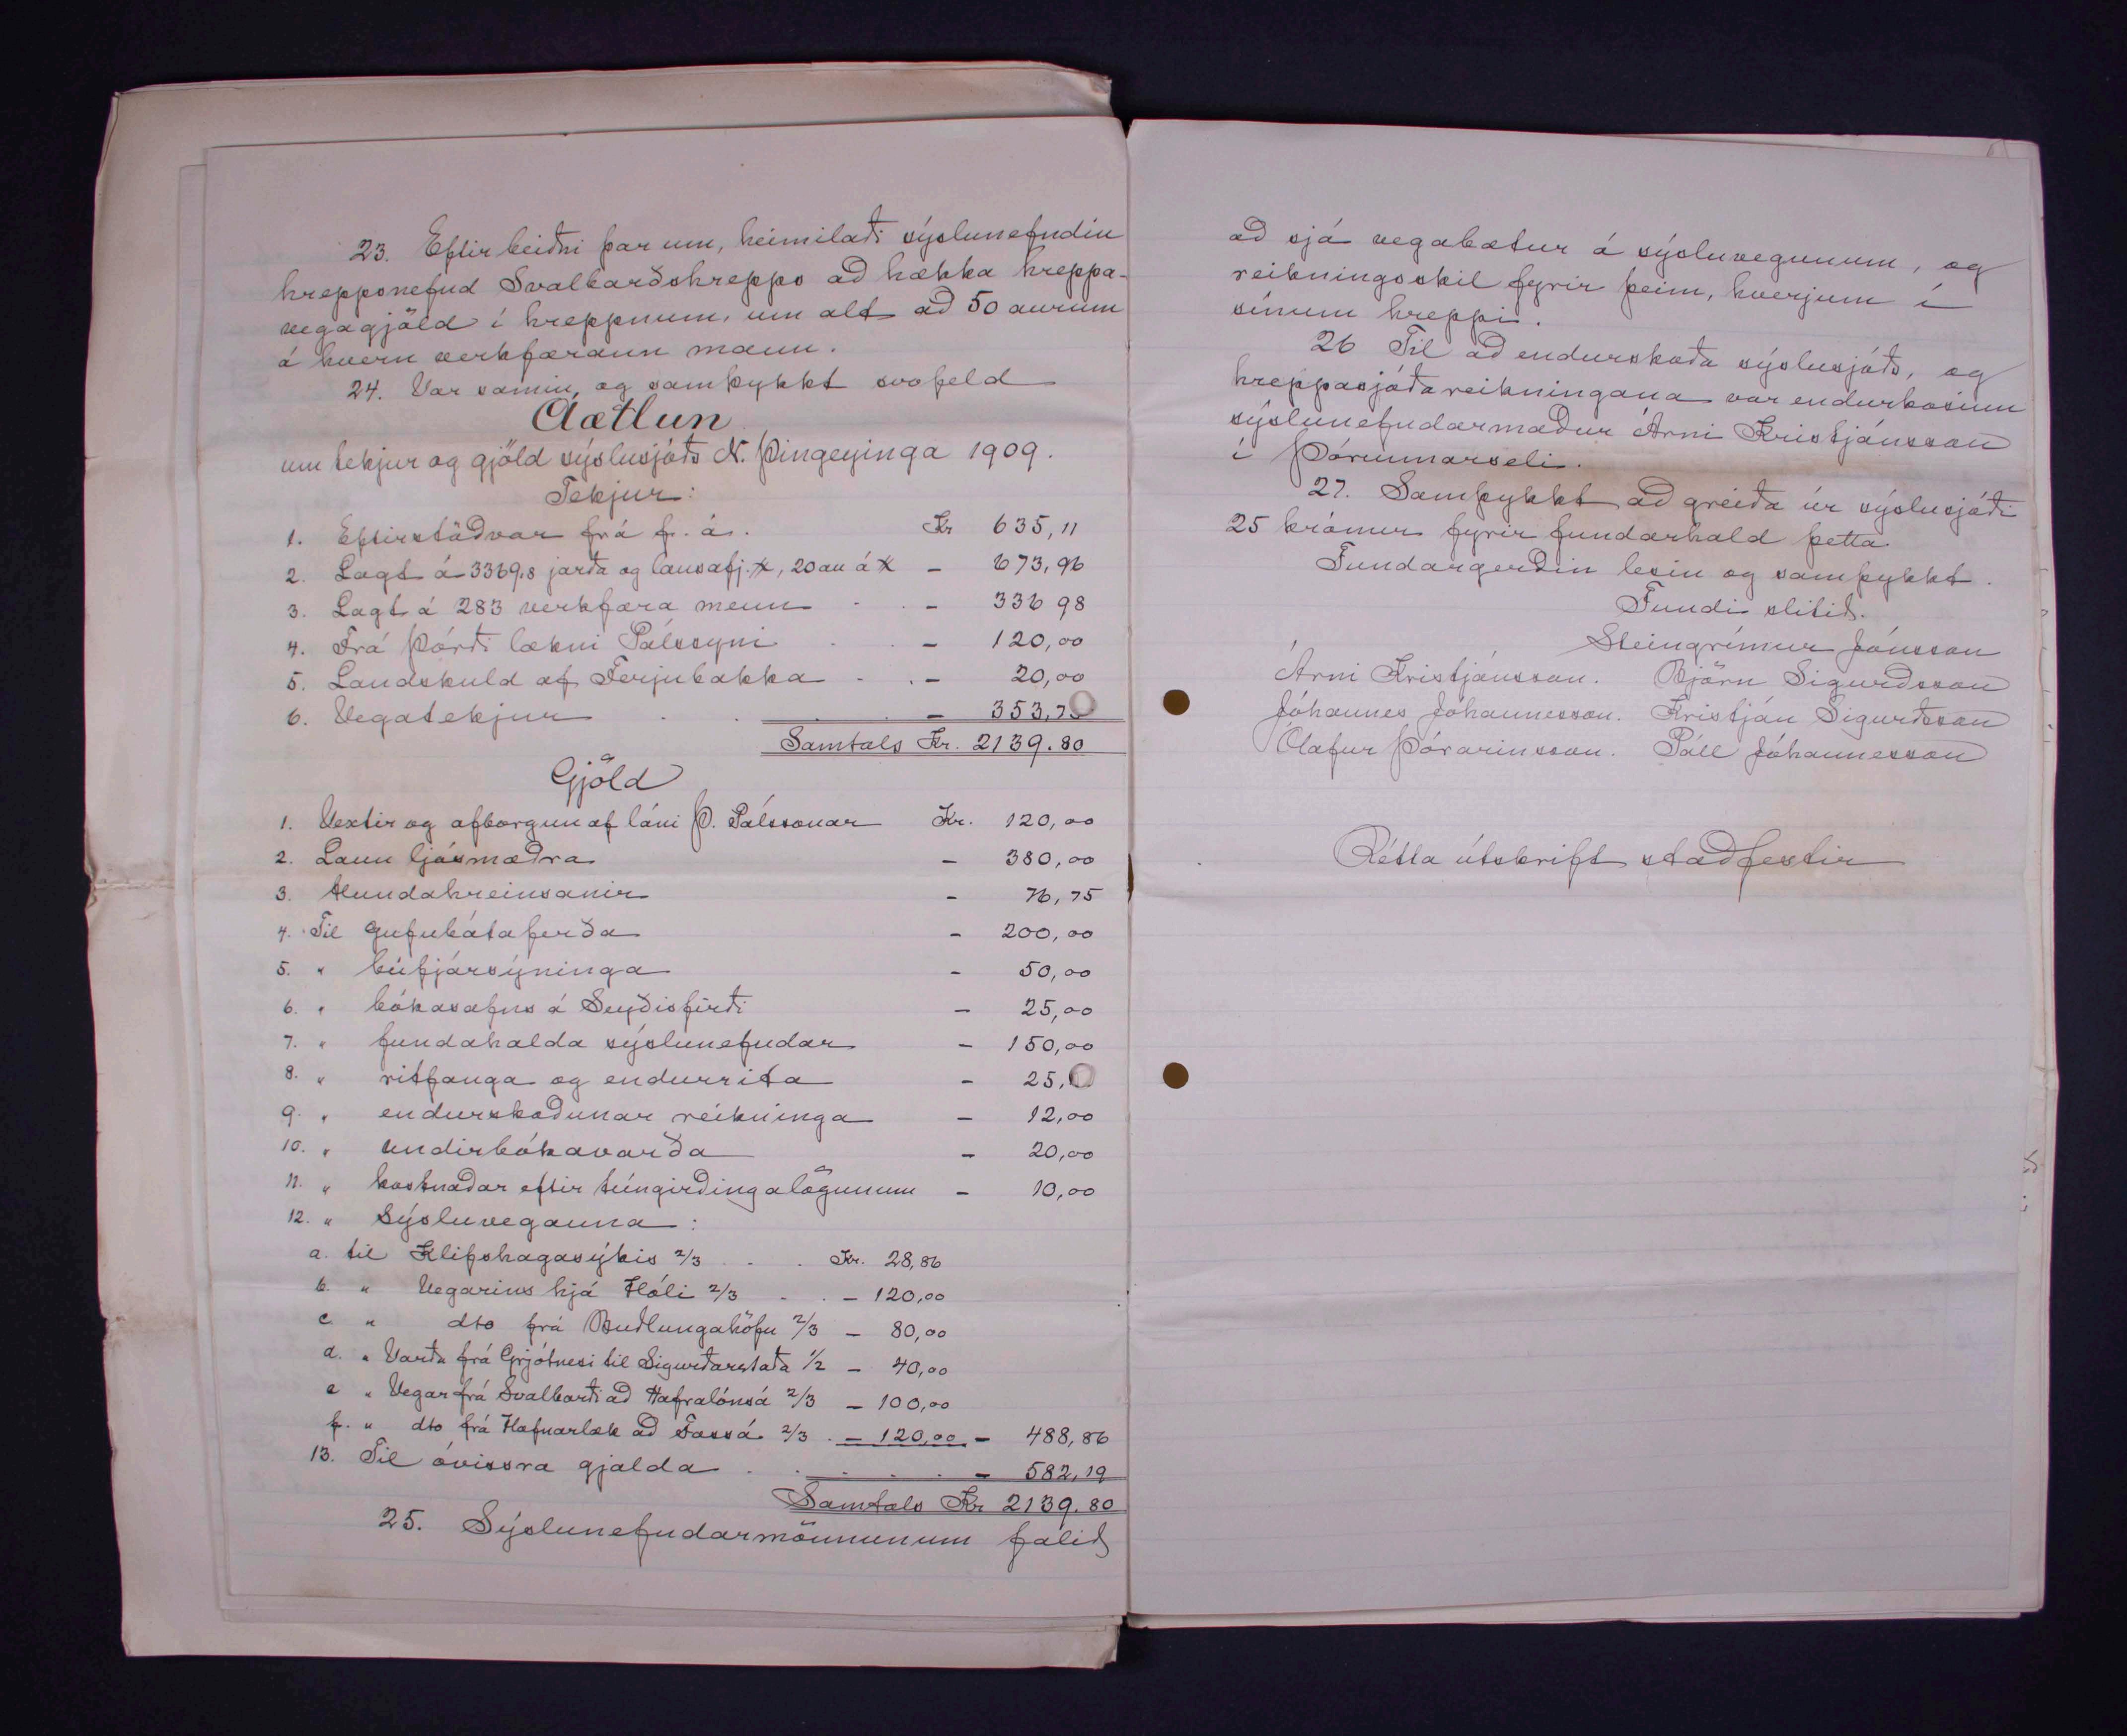 23. Eftir beiðni þar um, heimilaði sýslunefndin
hreppsnefnd Svalbarðshrepps að hækka hreppa-
vegagjöld í hreppnum, um alt að 50 aurum
á hvern verkfærann mann.
24. Var samin, og samþykkt svofeld
Áætlun
um tekjur og gjöld sýslusjóðs N. Þingeyinga 1909.
Tekjur:
1. Eftirstöðvar frá f. á. Kr 635,11
2. Lagt á 3369,8 jarða og lausafj. , 20 au á - 673,96
3. Lagt á 283 verkfæra menn - 336 98
4. Frá Þórði lækni Pálssyni - 120,00
5. Landskuld af Ferjubakka - 20,00
6. Vegatekjur - 353,75
Samtals Kr. 2139.80
Gjöld
1. Vextir og afborgun af láni Þ. Pálssonar Kr. 120,00
2. Laun ljósmæðra - 380,00
3. Hundahreinsanir - 76,75
4. Til gufubátaferða - 200,00
5. " búfjársýninga - 50,00
6. " bókasafns á Seyðisfirði - 25,00
7. " fundahalda sýslunefndar - 150,00
8. " ritfanga og endurrita - 25,
9. " endurskoðunar reikninga - 12,00
10. " undirbókavarða - 20,00
11. " kostnaðar eftir túngirðingalögunum - 10,00
12. " Sýsluveganna:
a. til Klifshagasýkis 2/3 . . Kr. 28,86
b. " Vegarins hjá Hóli 2/3 . . - 120,00
c. " dto frá Buðlungahöfn 2/3 - 80,00
d. " Varða frá Grjótnesi til Sigurðarstaða 1/2 - 40,00
e " Vegar frá Svalbarði að Hafralónsá 2/3 - 100,00
f. " dto frá Hafnarlæk að Fossá 2/3 . - 120,00 - 488,86
13. Til óvissra gjalda . . . . . - 582,19
Samtals Kr 2139.80
25. Sýslunefndarmönnunum falið
að sjá vegabætur á sýsluvegunum, og
reikningsskil fyrir þeim, hverjum í
sínum hreppi.
26 Til að endurskoða sýslusjóðs, og
hreppasjóðareikningana var endurkosinn
sýslunefndarmaður Árni Kristjánsson
í Þórunnarseli.
27. Samþykkt að greiða úr sýslusjóði
25 krónur fyrir fundarhald þetta
Fundargerðin lesin og samþykkt.
Fundi slitið.
Steingrímur Jónsson
Árni Kristjánsson. Björn Sigurðsson
Jóhannes Jóhannesson. Kristján Sigurðsson
Ólafur Þórarinsson. Páll Jóhannesson
Rétta útskrift staðfestir